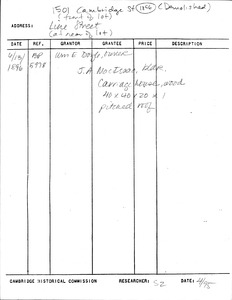 1501 Cambridge St (1896) (Demolished)
(front of lot)
ADDRESS: Line Street
(at rear of lot)
DATE REF. GRANTOR GRANTEE PRICE DESCRIPTION
4/13/ BP Wm E Doyle, owner
1896 5978
J.A. , bldr.
Carriage house, wood
40 x 40 x 20 x 1
pitched roof
CAMBRIDGE HISTORICAL COMMISSION RESEARCHER: SZ DATE: 4/95